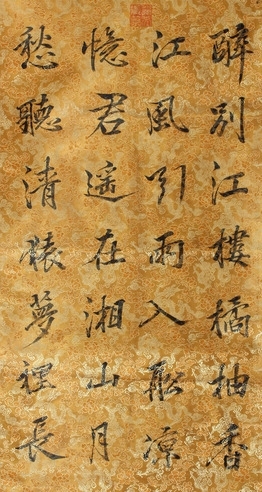 醉別江樓橘柚香
江風引雨入船涼
憶君遙在湘山月
愁聽清猿夢裡長